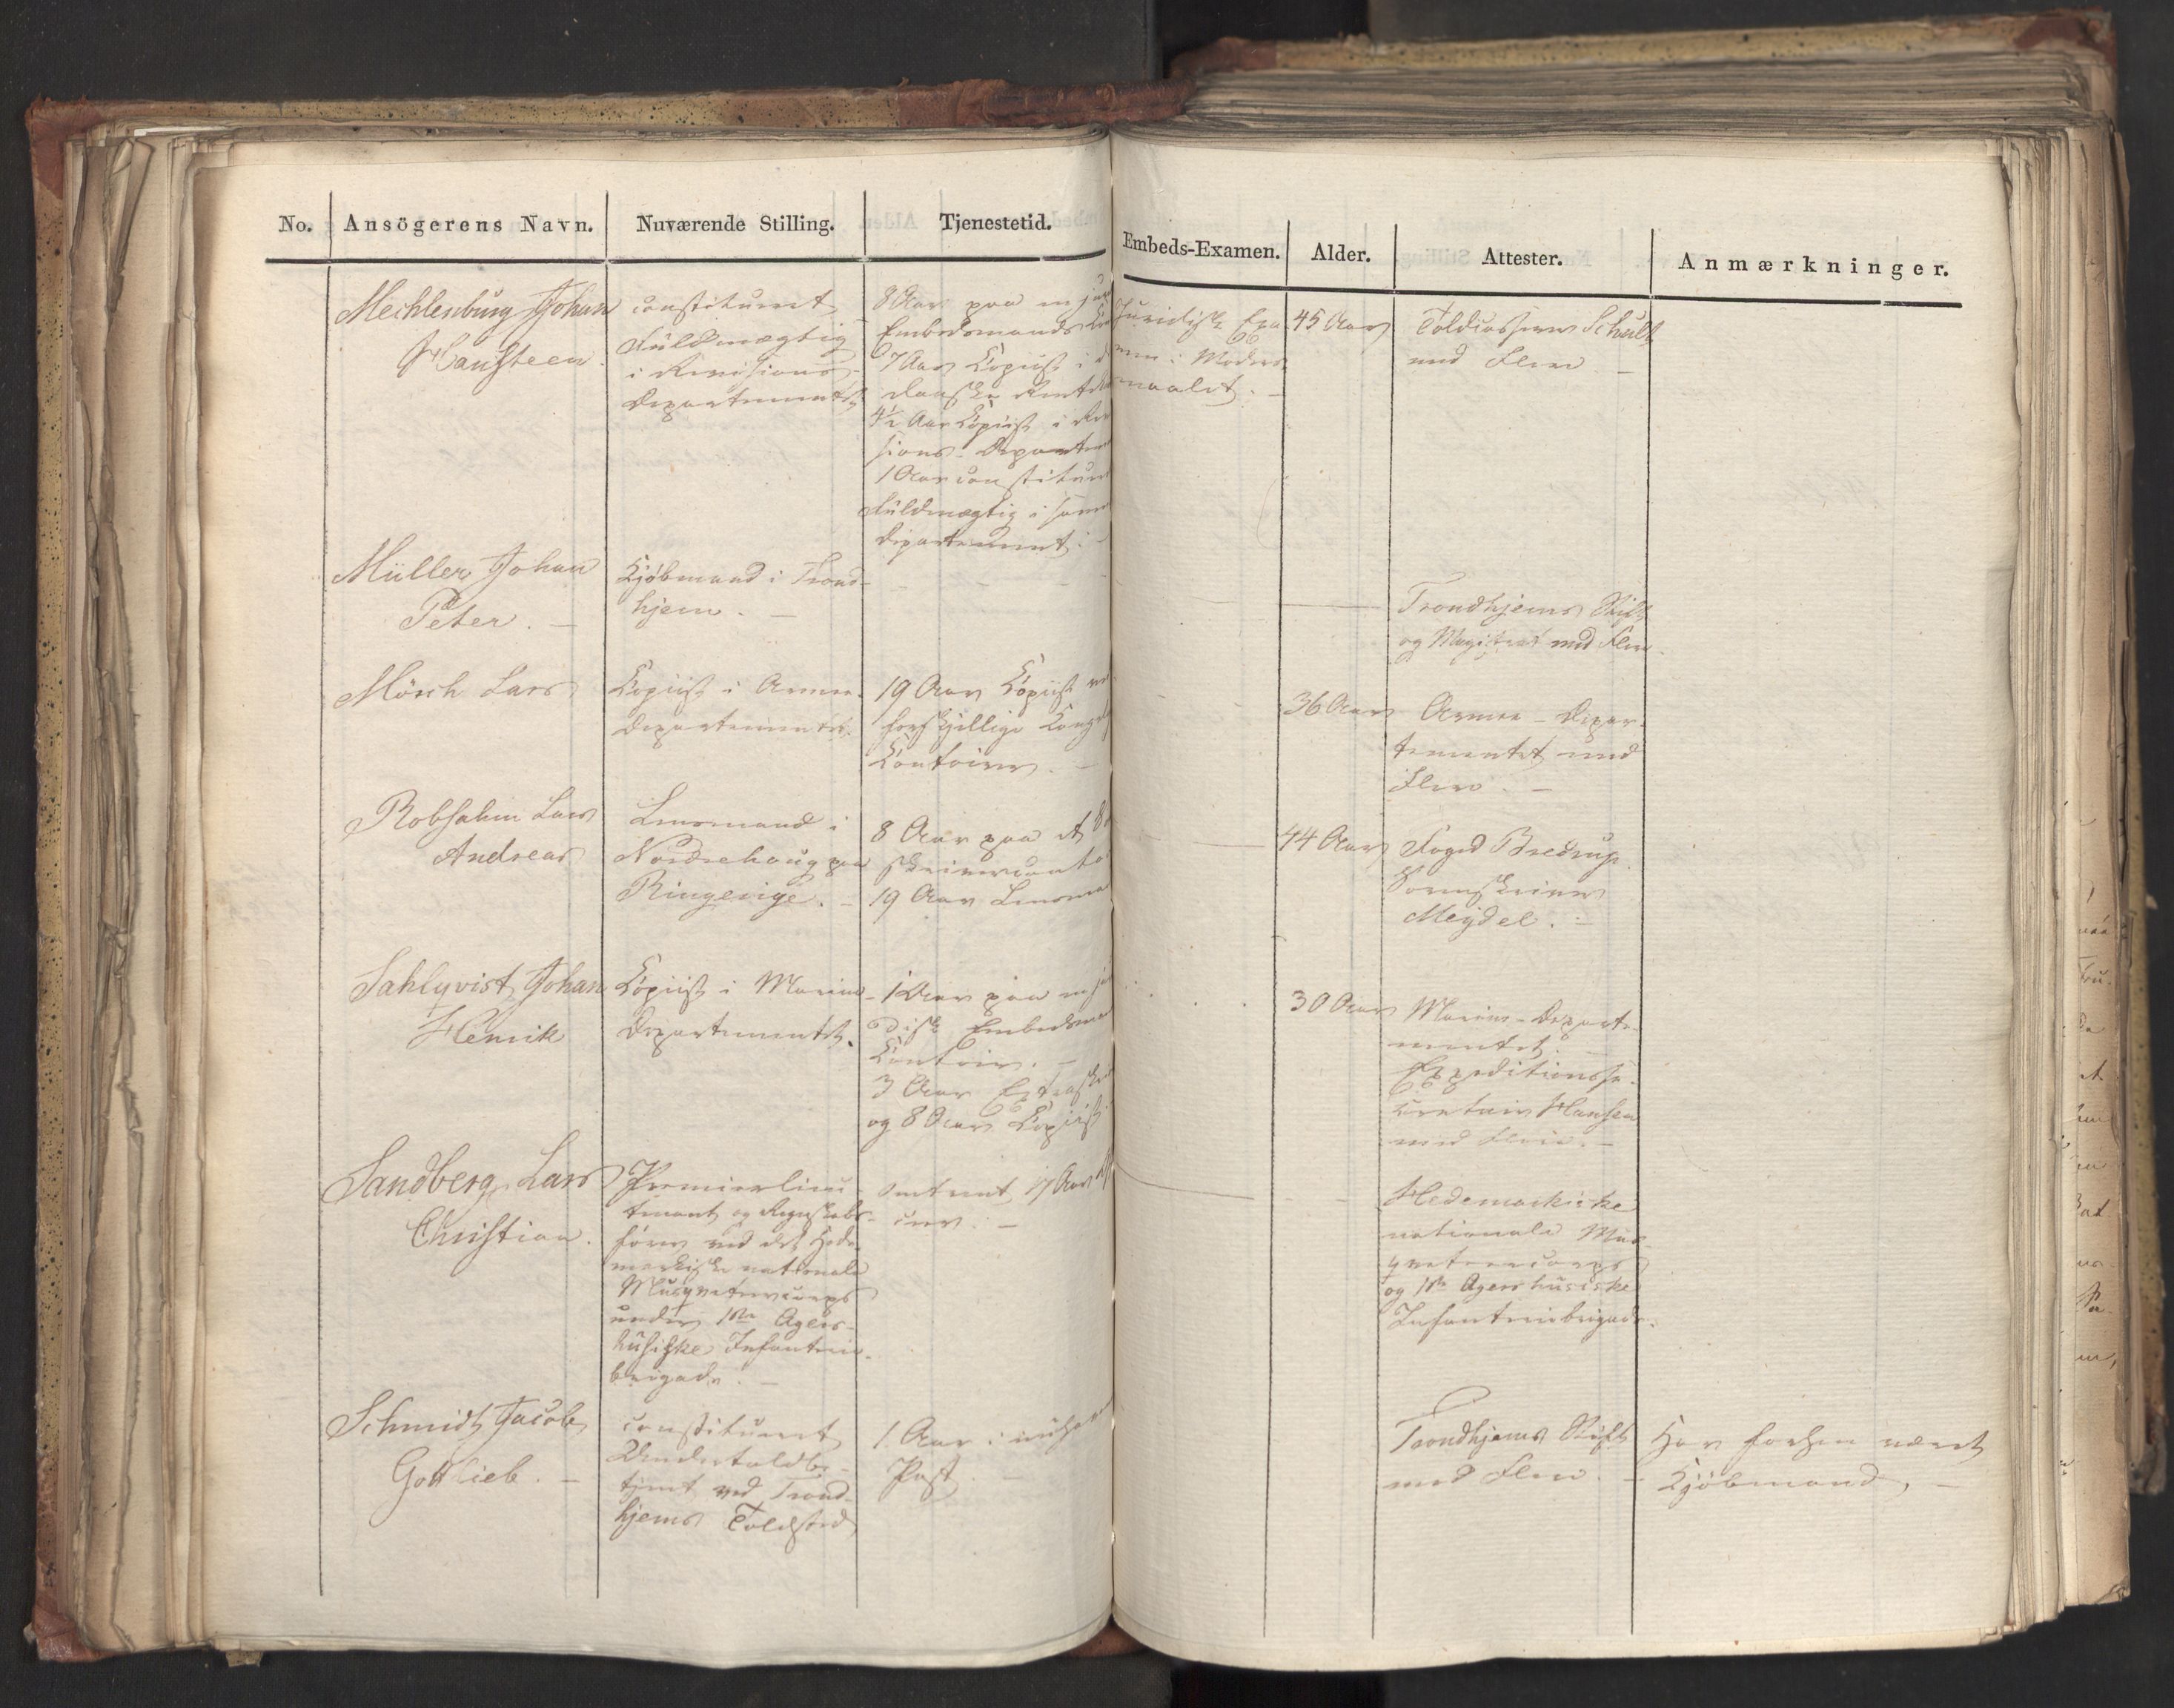 No. Ansögerens Navn. Nuværende Stilling. Tjenestetid. Embeds-Examen. Alder. Attester. Anmærkninger.
Mechlenburg Johan
Hansteen.
constitueret
Fuldmægtig
i Revisions-
Departementet
8 Aar paa en
Embedsmands
7 Aar Copiist i
danske
4½ Aar Copiist i
sions-Departem
1 Aar constitueret
Fuldmægtig i samme
Departement.
Juridisk Exa
men i Moders
maalet. –
45 Aar
Toldcasserer Schult
med Flere –
Müller Johan
Peter. –
Kjöbmand i Trond-
hjem. –
Trondhjems Stift
og Magistrat med Flere.
Mörch Lars
Copiist i Armee-
Departementet.
19 Aar Copiist ved
forskjellige Kongel
Contoirer. –
36 Aar
Armee-Depar-
tementet med
Flere. –
Robsahm Lars
Andreas
Lensmand i
Norderhoug paa
Ringerige. –
8 Aar paa et
skrivercontoi
19 Aar Lensman
44 Aar
Foged Bredrup.
Sorenskriver
Meydel. –
Sahlqvist Johan
Henrik
Copiist i Marine-
Departementet.
1 Aar paa en ju
disk Embedsman
Contoir. –
3 Aar Extraskri
og 8 Aar Copiist
30 Aar
Marine-Departe-
mentet.
Expeditionsse-
cretair Hansen
med Flere. –
Sandberg Lars
Christian.
Premierlieu
tenant og Regnskabs-
förer ved det Hede-
markiske nationale
Musqueteercorps
under 1ste Agers-
husiske Infanterie-
brigade. –
omtrent 17 Aar
cier. –
Hedemarkiske
nationale Mus-
queteercorps
og 1ste Agershusiske
Infanteriebrigade.
Schmidt Jacob
Gottlieb. –
constitueret
Undertoldbe-
tjent ved Trond-
hjems Toldsted
1 Aar i
Post. –
Trondhjems Stift
med Flere. –
Har forhen været
Kjöbmand, –